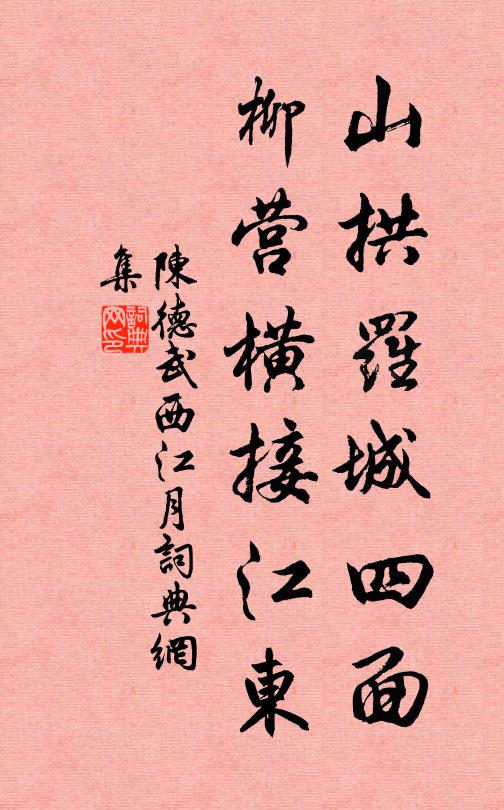 山拱羅城四面
柳营橫接江東
陳德武西江月詞典網
集
詞典
网印